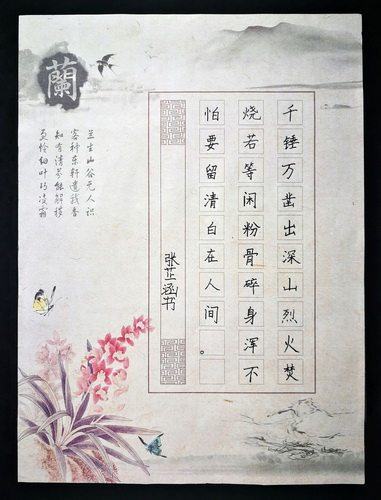 千锤万凿出深山烈火焚
烧若等闲粉骨碎身浑不
怕要留清白在人间。
张芷涵书
蘭
兰生山谷无人识
客种东轩遗我香
知有清芬能解秽
更怜细叶巧凌霜